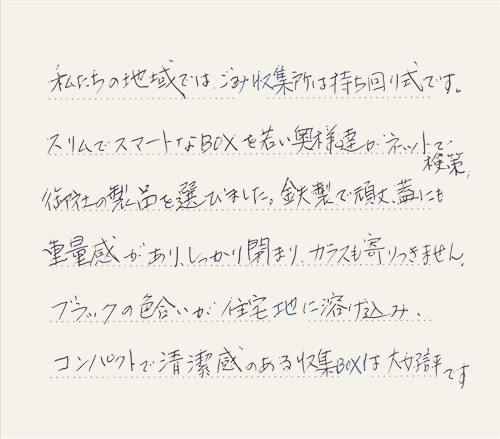 私たちの地域では、ごみ収集所は持ち回り式です。
スリムでスマートなBOXを若い奥様達がネットで
検策、
御社の製品を選びました。鉄製で頑丈、蓋にも
重量感があり、しっかり閉まり、カラスも寄りつきません。
ブラックの色合いが住宅地に溶け込み、
コンパクトで清潔感のある収集BOXは大好評です